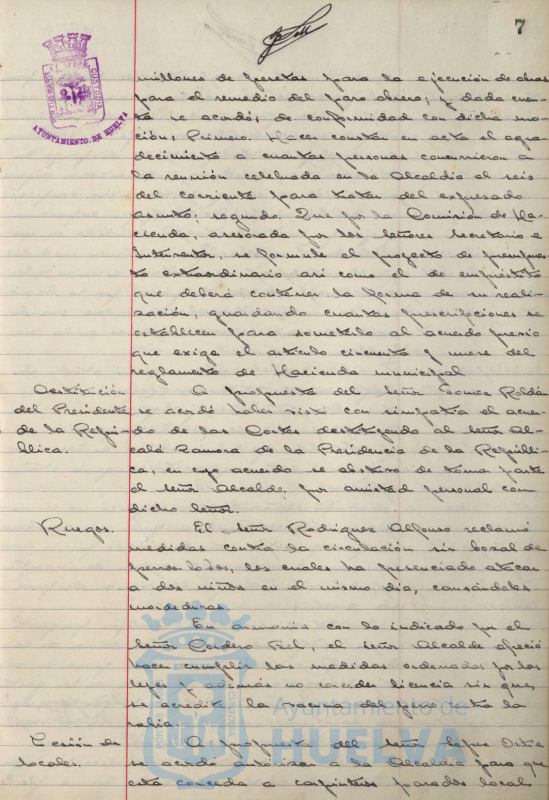 7
PORTUS MARIS ET TERRAE CUSTODIA
AYUNTAMIENTO DE HUELVA
millones de pesetas para la ejecución de obras
para el remedio del paro obrero; y dada cuen-
ta se acordó, de conformidad con dicha mo-
ción; Primero. Hacer constar en acta el agra-
decimiento a cuantas personas concurrieron a
la reunión celebrada en la Alcaldía el seis
del corriente para tratar del expresado
asunto; segundo. Que por la Comisión de Ha-
cienda, asesorada por los señores Secretario e
Interventor, se formule el proyecto de presupues-
to extraordinario así como el de empréstito
que deberá contener la forma de su reali-
zación, guardando cuantas prescripciones se
establecen para someterlo al acuerdo previo
que exige el artículo cincuenta y nueve del
reglamento de Hacienda municipal
Destitución
del Presidente
de la Repú-
blica.
A propuesta del señor Gomez Roldán
se acordó haber visto con simpatía el acuer-
do de las Cortes destituyendo al señor Al-
calá Zamora de la Presidencia de la Repúbli-
ca, en cuyo acuerdo se abstuvo de tomar parte
el señor Alcalde, por amistad personal con
dicho señor.
Ruegos.
El señor Rodriguez Alfonso reclamó
medidas contra la circulación sin bozal de
perros lobos, los cuales ha presenciado atacar
a dos niños en el mismo día, causándoles
mordeduras.
En armonia con lo indicado por el
señor Cordero, el señor Alcalde ofreció
hacer cumplir las medidas ordenadas por las
leyes y además no conceder licencia sin que
se acredite la vacuna del perro contra la
rabia.
Cesión de
locales.
A propuesta del señor Lopez Ortiz
se acordó autorizar a la Alcaldía para que
esta conceda a carpinteros parados local
Ayuntamiento de
HUELVA